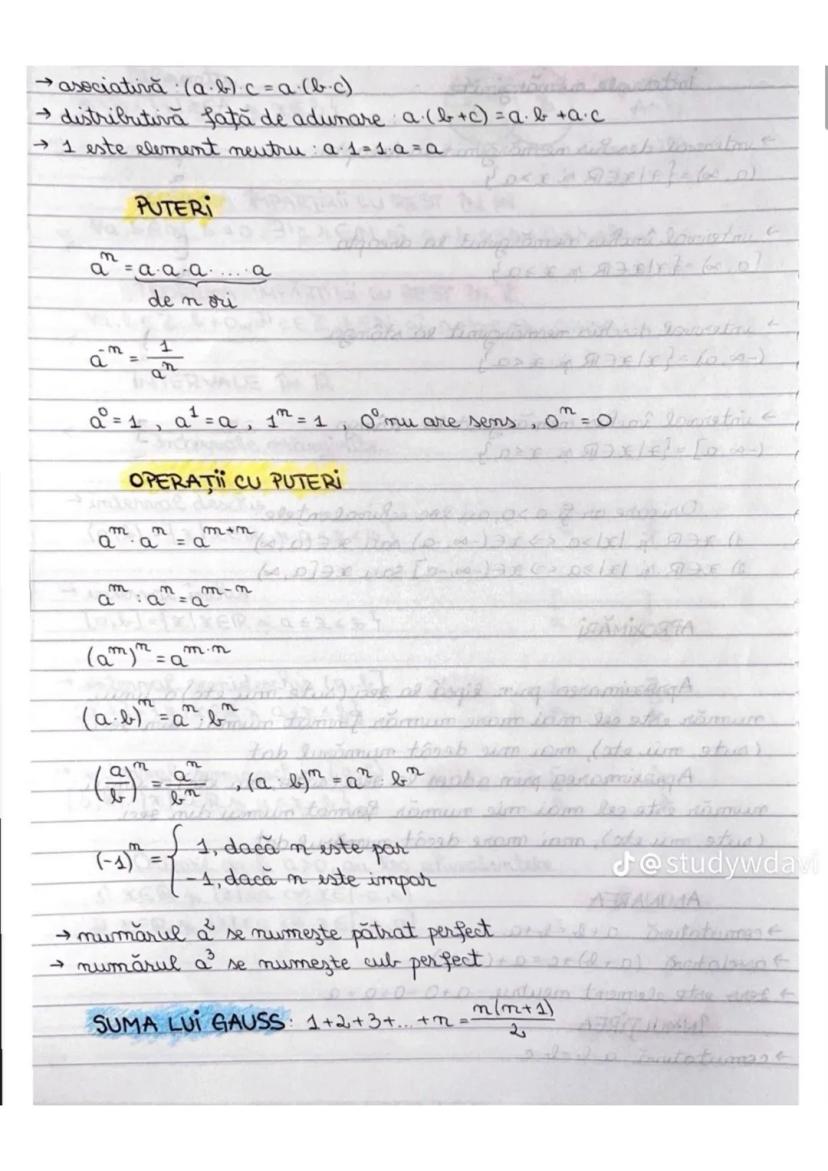 → asociativă : (a·b)·c = a·(b·c)
→ distributivă față de adunare : a·(b+c) = a·b + a·c
→ 1 este element neutru : a·1 = 1·a = a
PUTERI
aⁿ = a·a·a·...·a
de n ori
a⁻ⁿ = 1/aⁿ
a⁰ = 1 , a¹ = a , 1ⁿ = 1 , 0⁰ nu are sens , 0ⁿ = 0
OPERAȚII CU PUTERI
aᵐ · aⁿ = aᵐ⁺ⁿ
aᵐ : aⁿ = aᵐ⁻ⁿ
(aᵐ)ⁿ = aᵐ·ⁿ
(a·b)ⁿ = aⁿ · bⁿ
(a/b)ⁿ = aⁿ/bⁿ , (a · b)ⁿ = aⁿ · bⁿ
(-1)ⁿ = { 1, dacă n este par
-1, dacă n este impar
@studywdavi
→ numărul a² se numește pătrat perfect
→ numărul a³ se numește cub perfect
SUMA LUI GAUSS : 1+2+3+...+n = n(n+1)/2